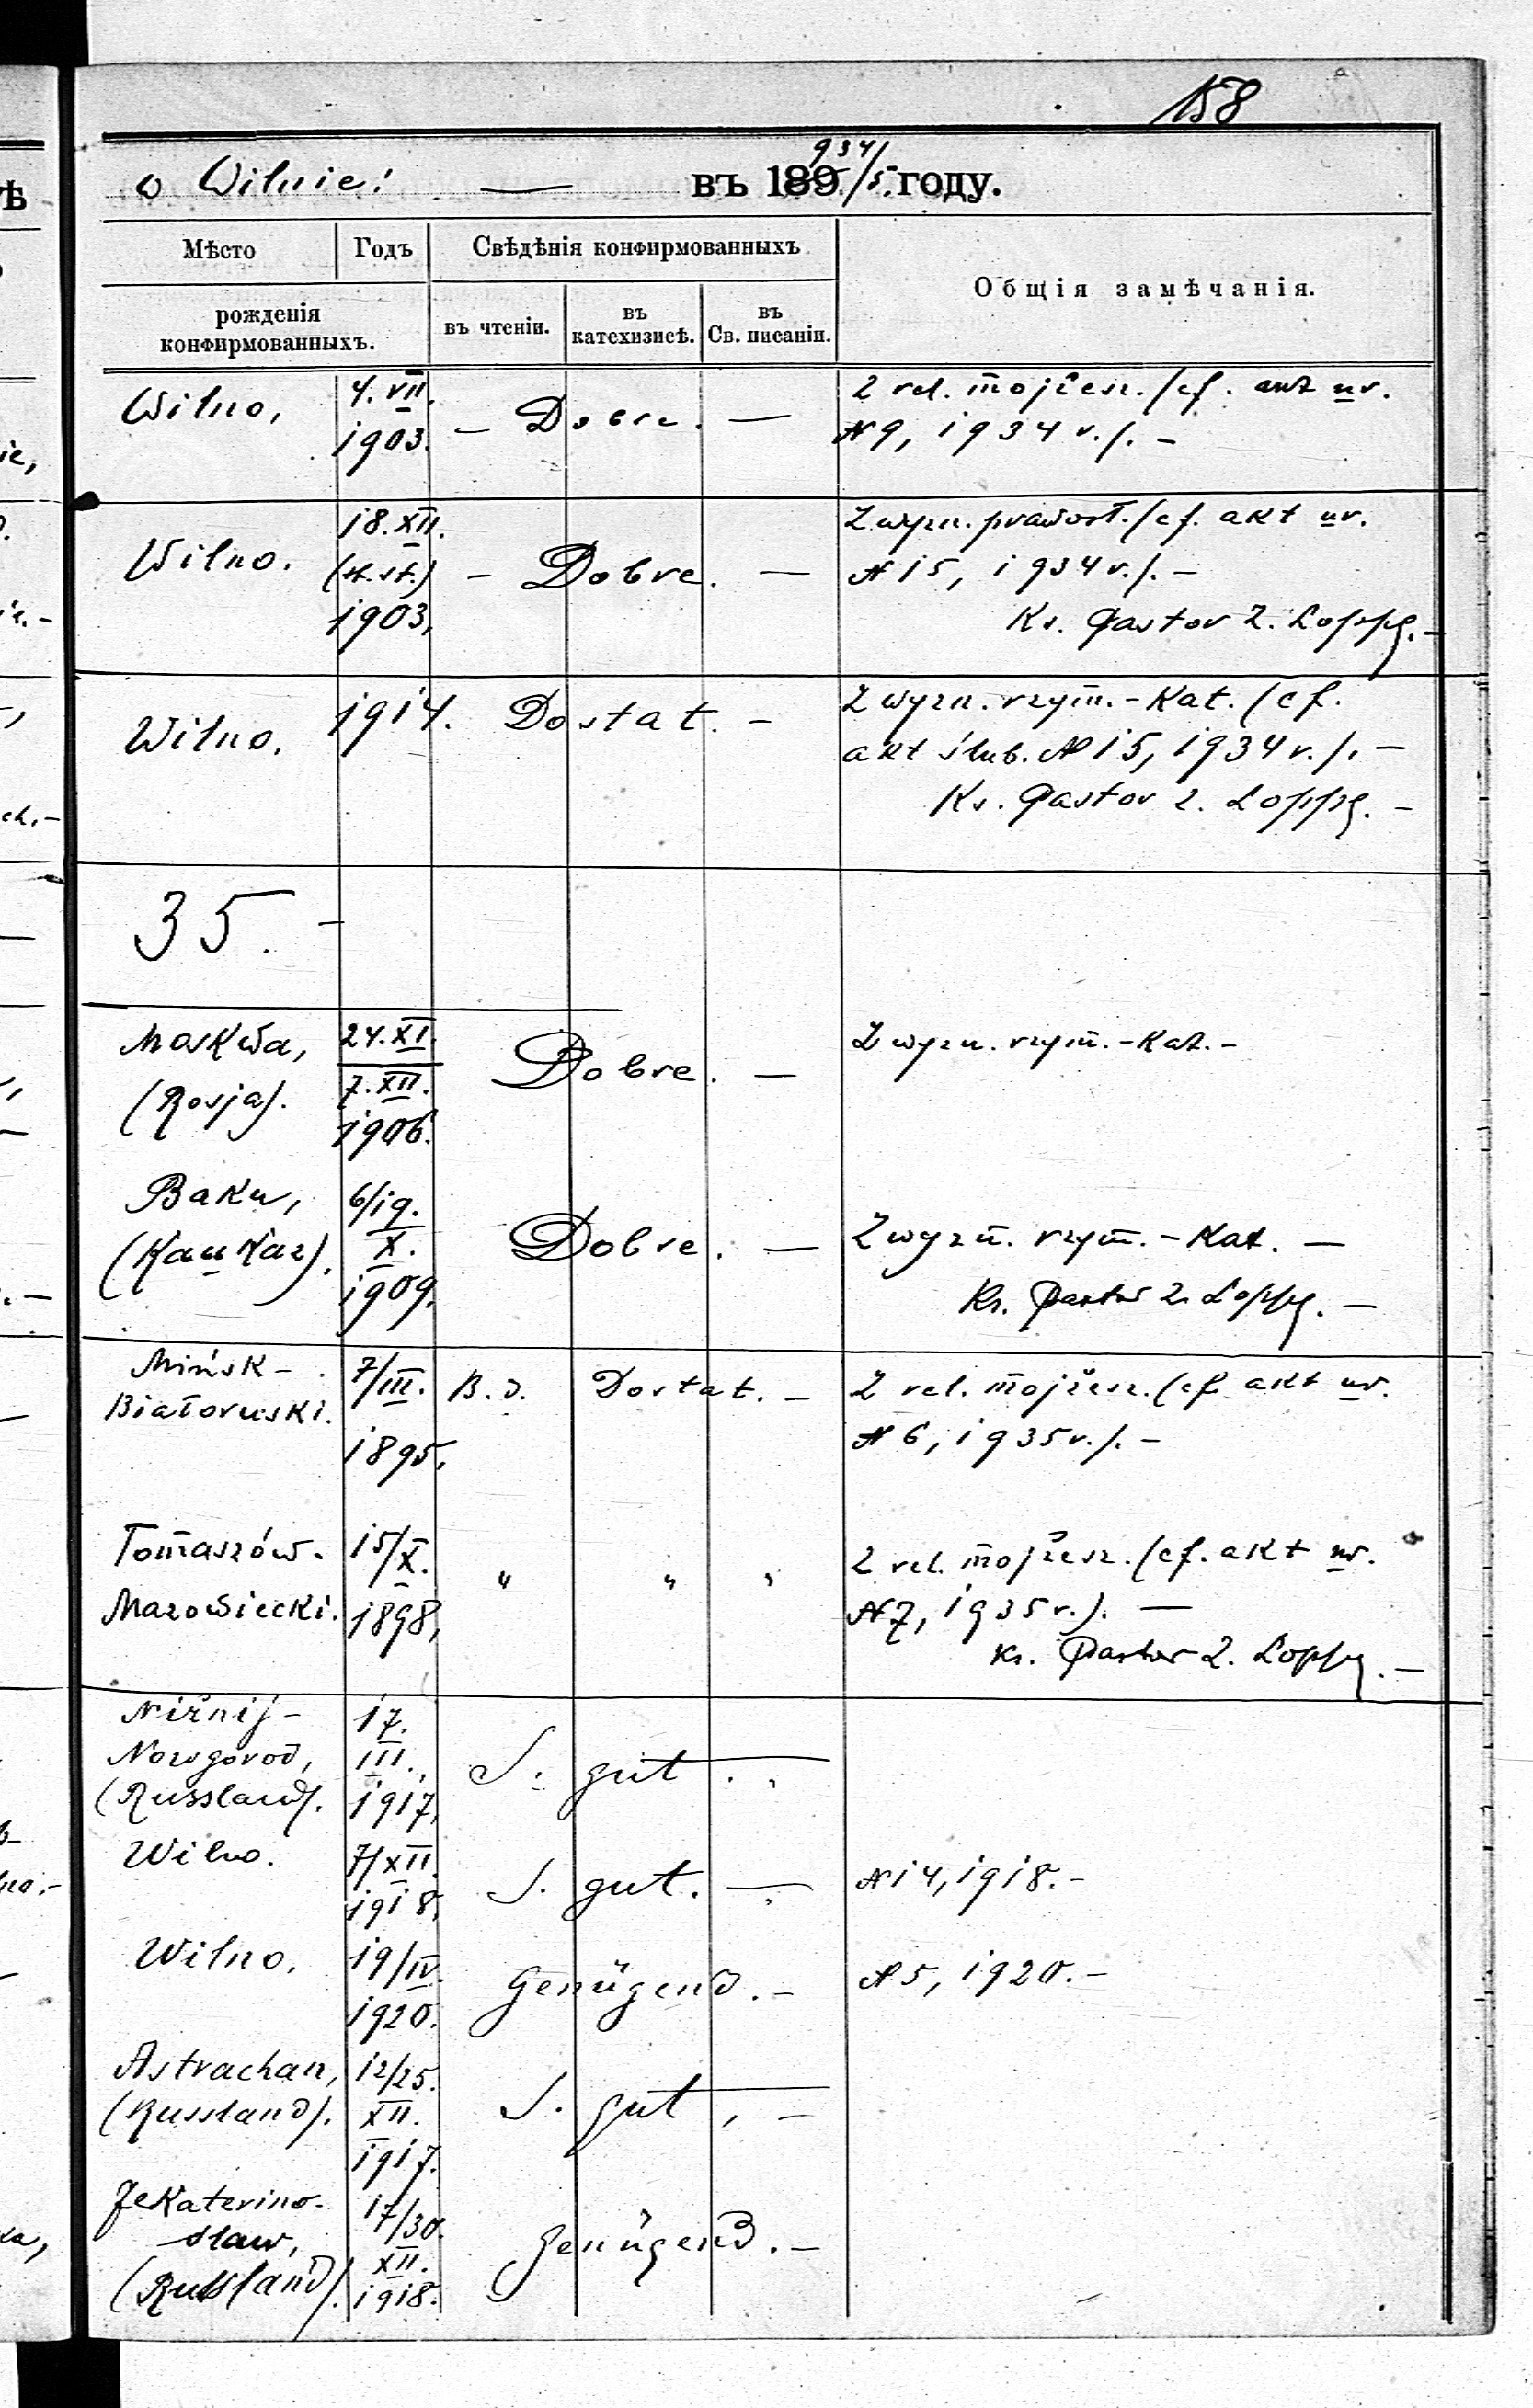 158
w Wilnie: — въ 189 934/5. году.
Мѣсто Годъ Свѣдѣнія конфирмованныхъ Общія замѣчанія.
рожденія
конфирмованныхъ.
въ чтеніи. въ катехизисѣ. въ Св. писаніи.
Wilno, 4. VII. 1903. — Dobre. —
Z rel. mojżesz. (cf. akt ur.
№ 9, 1934 r.). —
Wilno. 18. XII. (st. st.) 1903, — Dobre. —
Z wyzn. prawosł. (cf. akt ur.
№ 15, 1934 r.). —
Ks. Pastor Z. Loppe. —
Wilno. 1914. Dostat. —
Z wyzn. rzym.-Kat. (cf.
akt ślub. № 15, 1934 r.). —
Ks. Pastor Z. Loppe. —
35. —
Moskwa, (Rosja). 24. XI. 7. XII. 1906. Dobre. —
Z wyzn. rzym.-Kat. —
Baku, (Kaukaz). 6/19. X. 1909. Dobre. —
Z wyzn. rzym.-Kat. —
Ks. Pastor Z. Loppe. —
Mińsk-Białoruski. 7/III. 1895. B. d. Dostat. —
Z rel. mojżesz. (cf. akt ur.
№ 6, 1935 r.). —
Tomaszów-Mazowiecki. 15/X. 1898, " " "
Z rel. mojżesz. (cf. akt ur.
№ 7, 1935 r.). —
Ks. Pastor Z. Loppe. —
Nižnij-
Nowgorod,
(Russland). 17. III., 1917, S. gut.
Wilno. 7/XII. 1918, S. gut. — № 14, 1918. —
Wilno. 19/IV. 1920. Genügend. — № 5, 1920. —
Astrachan,
(Russland). 12/25. XII. 1917. S. gut, —
Jekaterino-
slaw,
(Russland). 17/30. XII. 1918. Genügend. —